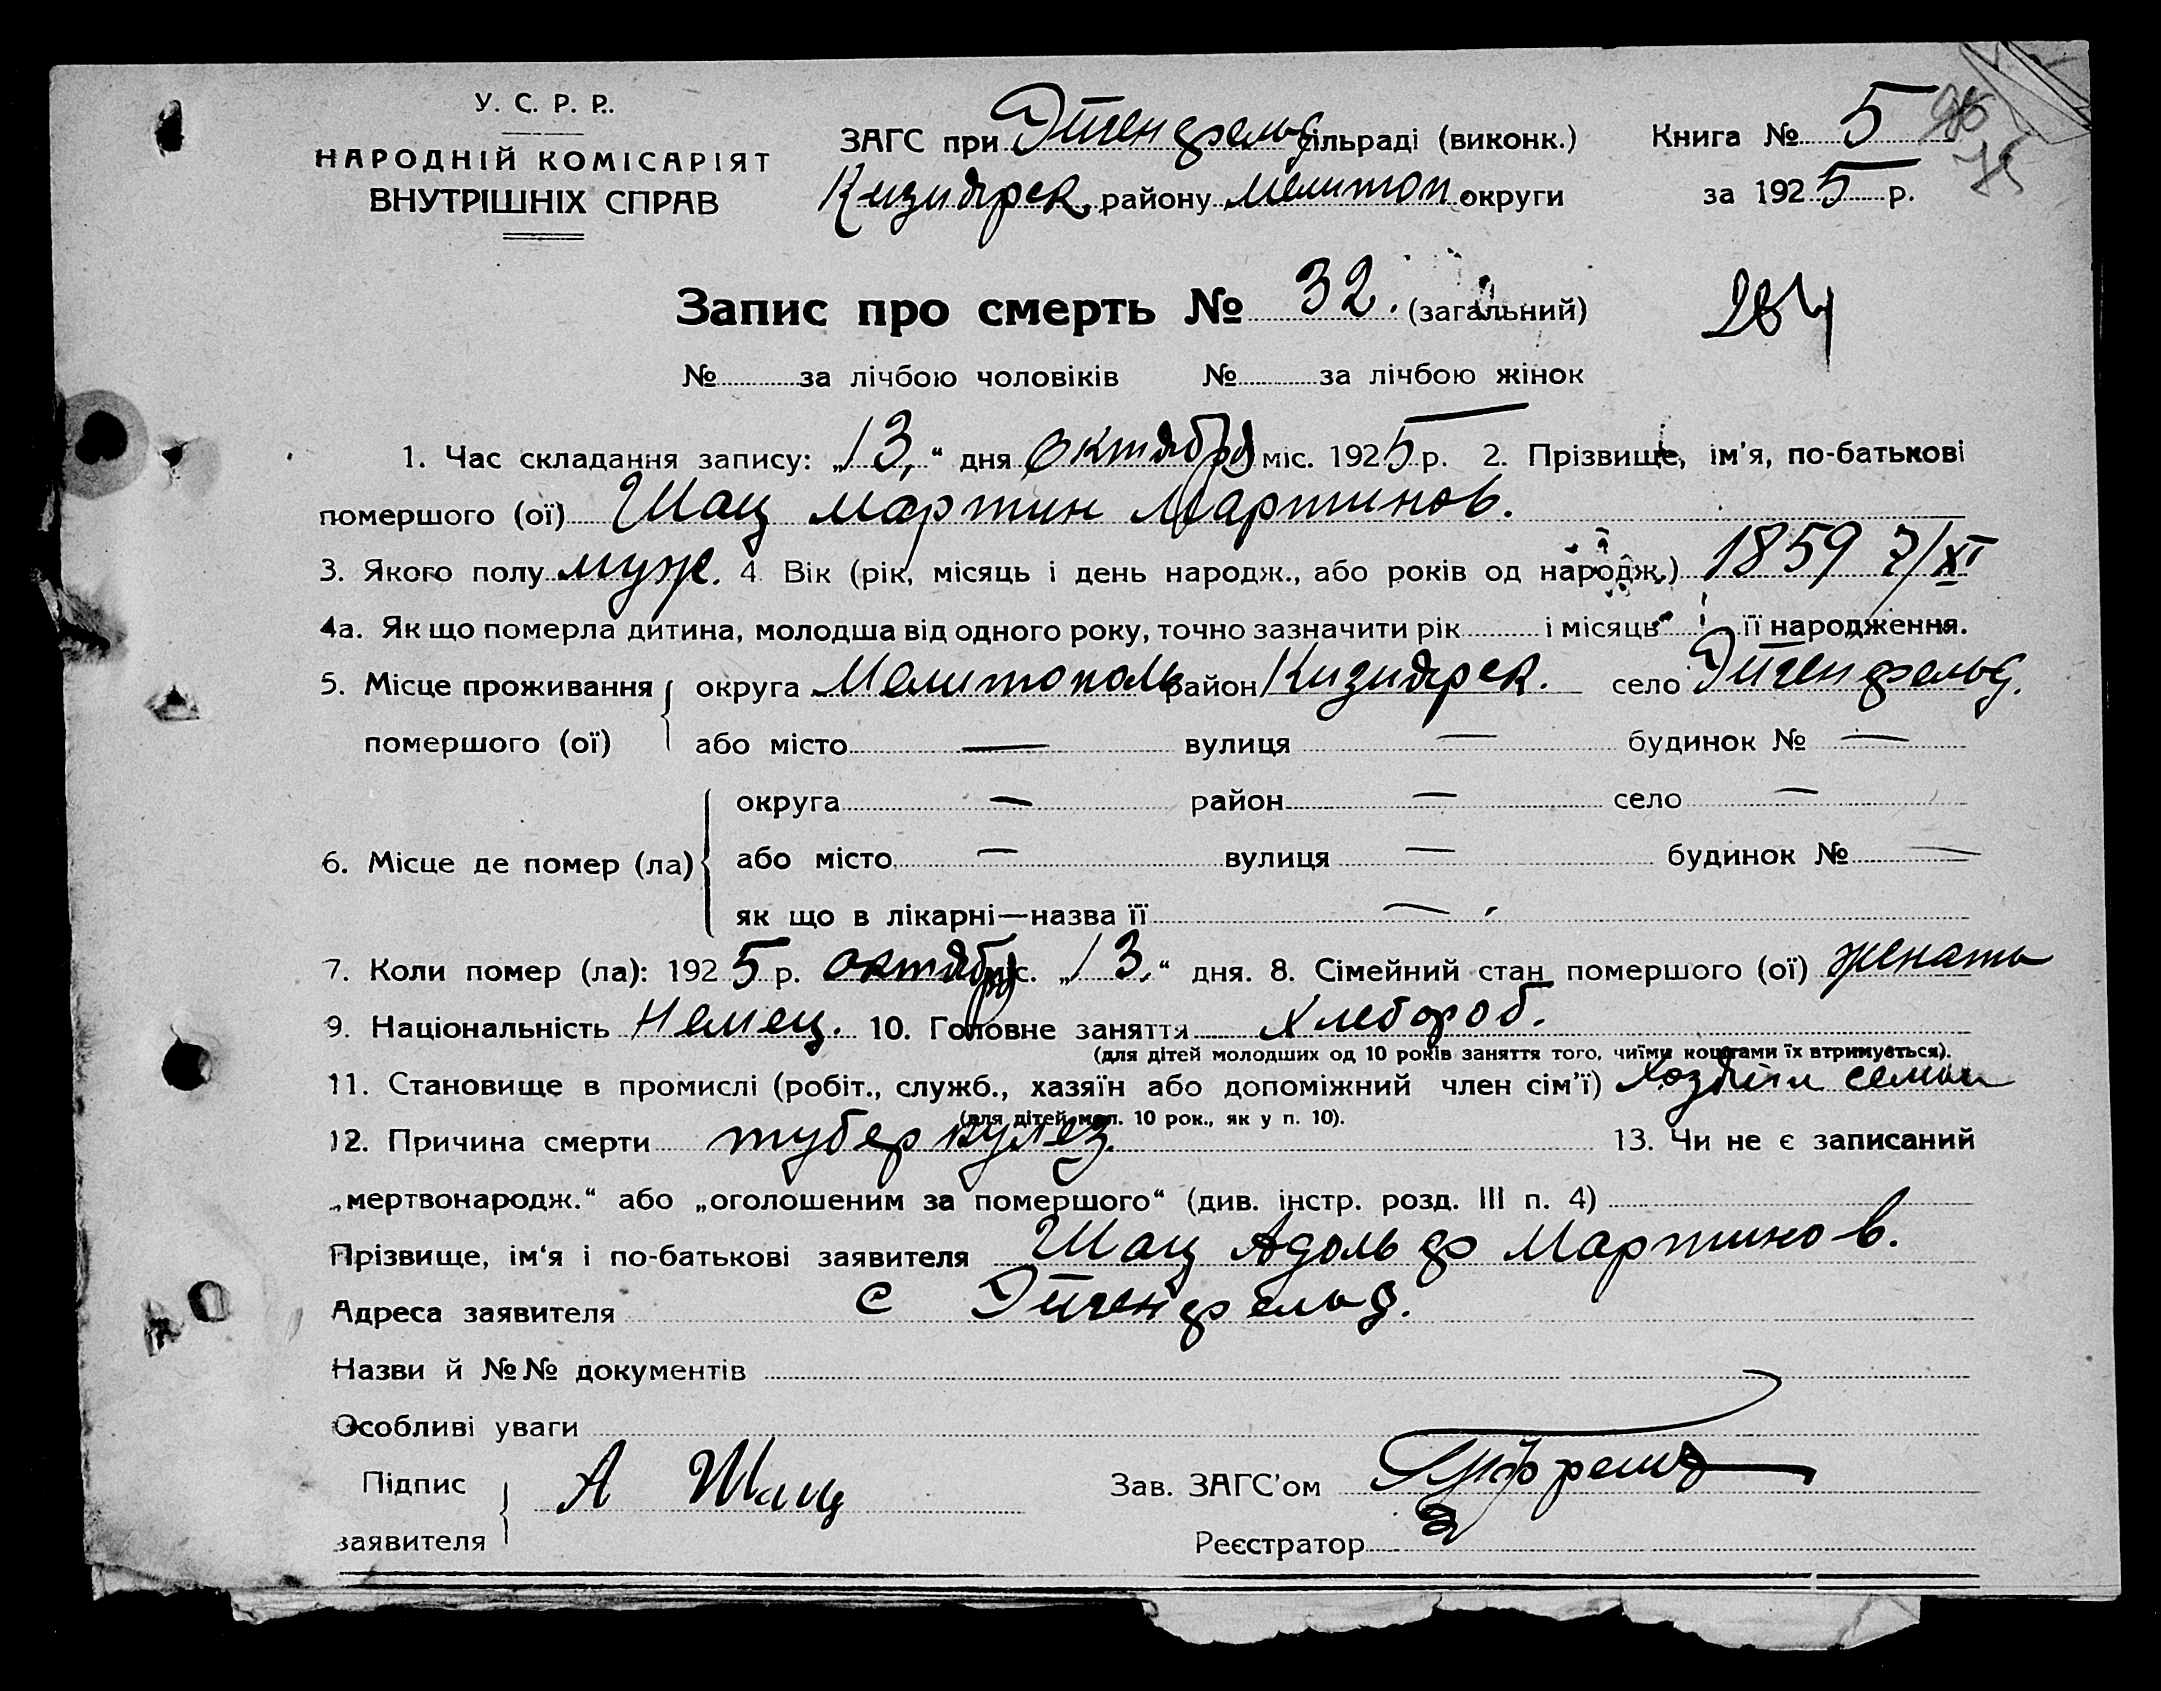 У. С. Р. Р.
НАРОДНІЙ КОМІСАРІЯТ
ВНУТРІШНІХ СПРАВ
ЗАГС при Эйгенфельд сільраді (виконк.)
Кизиярск. району Мелитоп. округи
Книга № 5
за 1925 р.
Запис про смерть № 32. (загальний)
284
№ за лічбою чоловіків № за лічбою жінок
1. Час складання запису: „13“ дня октября міс. 1925 р. 2. Прізвище, ім'я, по-батькові
помершого (ої) Шац Мартин Мартинов.
3. Якого полу муж. 4. Вік (рік, місяць і день народж., або років од народж.) 1859 7/XI
4а. Як що померла дитина, молодша від одного року, точно зазначити рік і місяць її народження.
5. Місце проживання помершого (ої) округа Мелитополь район Кизиярск. село Эйгенфельд.
або місто — вулиця — будинок № —
6. Місце де помер (ла) округа — район — село —
або місто — вулиця — будинок № —
як що в лікарні—назва її —
7. Коли помер (ла): 1925 р. октября міс. „13“ дня. 8. Сімейний стан помершого (ої) женаты
9. Національність Немец. 10. Головне заняття Хлебороб.
(для дітей молодших од 10 років заняття того, чиїми коштами їх втримується).
11. Становище в промислі (робіт., служб., хазяїн або допоміжний член сім'ї) Хозяин семьи
(для дітей мол. 10 рок., як у п. 10).
12. Причина смерти туберкулез 13. Чи не є записаний
„мертвонародж.“ або „оголошеним за помершого“ (див. інстр. розд. III п. 4)
Прізвище, ім'я і по-батькові заявителя Шац Адольф Мартинов.
Адреса заявителя с Эйгенфельд.
Назви й №№ документів
Особливі уваги
Підпис заявителя А Шац
Зав. ЗАГС'ом
Реєстратор